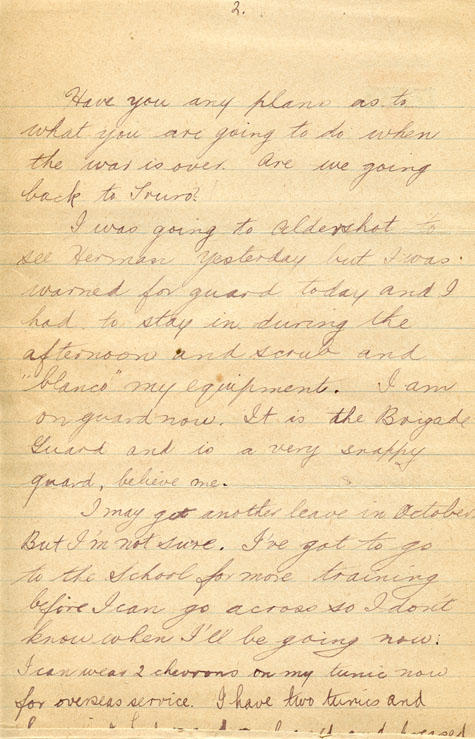 2.
Have you any plans as to
what you are going to do when
the war is over. Are we going
back to Truro?
I was going to Aldershot to
see Herman yesterday but I was
warned for guard today and I
had to stay in during the
afternoon and scrub and
"blanco" my equipment. I am
on guard now. It is the Brigade
Guard and is a very snappy
guard, believe me.
I may get another leave in October
But I'm not sure. I've got to go
to the School for more training
before I can go across so I don't
know when I'll be going now.
I can wear 2 chevrons on my tunic now
for overseas service. I have two tunics and
and pressed